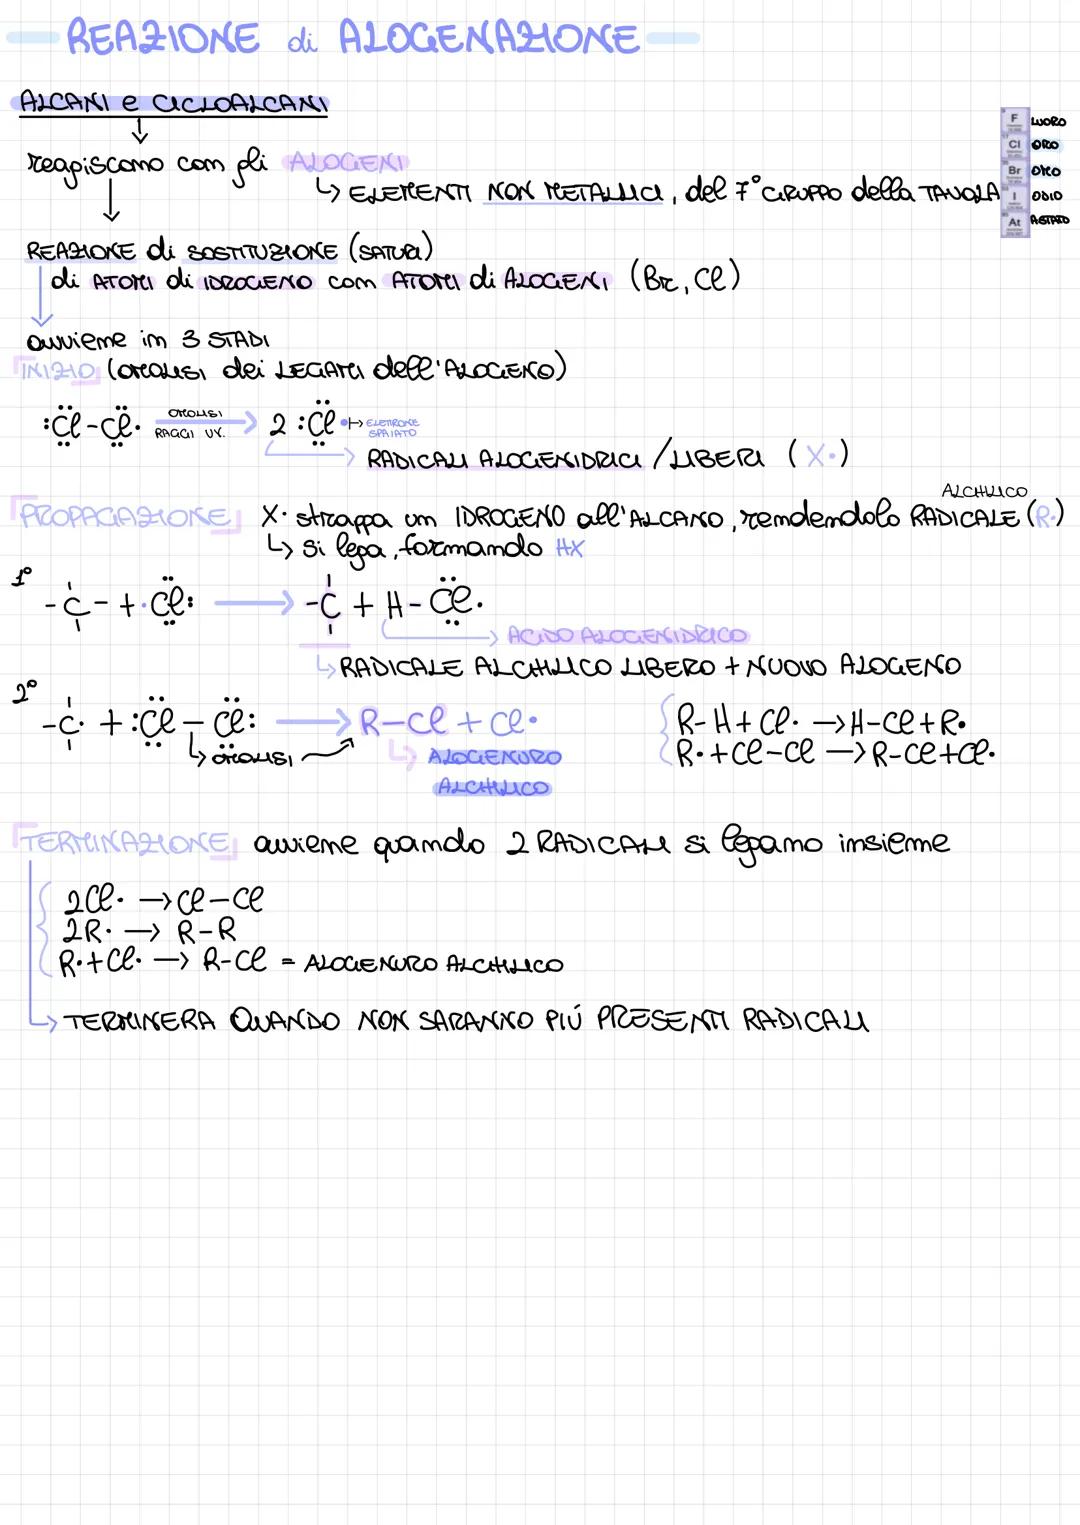 REAZIONE di ALOGENAZIONE
ALCANI e CICLOALCANI
reagiscono con gli ALOGENI
↳ ELEMENTI NON METALLICI, del 7° GRUPPO della TAVOLA
F LUORO
Cl ORO
Br OMO
I ODIO
At ASTATO
REAZIONE di SOSTITUZIONE (SATURI)
di ATOMI di IDROGENO con ATOMI di ALOGENI (Br, Cl)
avviene in 3 STADI
INIZIO (OMOLISI dei LEGAMI dell'ALOGENO)
:Cl-Cl· OMOLISI RAGGI UV. → 2 :Cl· ↦ ELETTRONE SPAIATO
→ RADICALI ALOGENIDRICI / LIBERI (X·)
PROPAGAZIONE X· strappa un IDROGENO all'ALCANO, rendendolo RADICALE ALCHILICO (R·)
↳ si lega, formando HX
1°
-C- + ·Cl: → -C + H-Cl·
→ ACIDO ALOGENIDRICO
↳ RADICALE ALCHILICO LIBERO + NUOVO ALOGENO
2°
-C· + :Cl-Cl: → R-Cl + Cl·
↳ OMOLISI
↳ ALOGENURO ALCHILICO
R-H + Cl· → H-Cl + R·
R· + Cl-Cl → R-Cl + Cl·
TERMINAZIONE avviene quando 2 RADICALI si legano insieme
2Cl· → Cl-Cl
2R· → R-R
R· + Cl· → R-Cl = ALOGENURO ALCHILICO
↳ TERMINERA QUANDO NON SARANNO PIÚ PRESENTI RADICALI